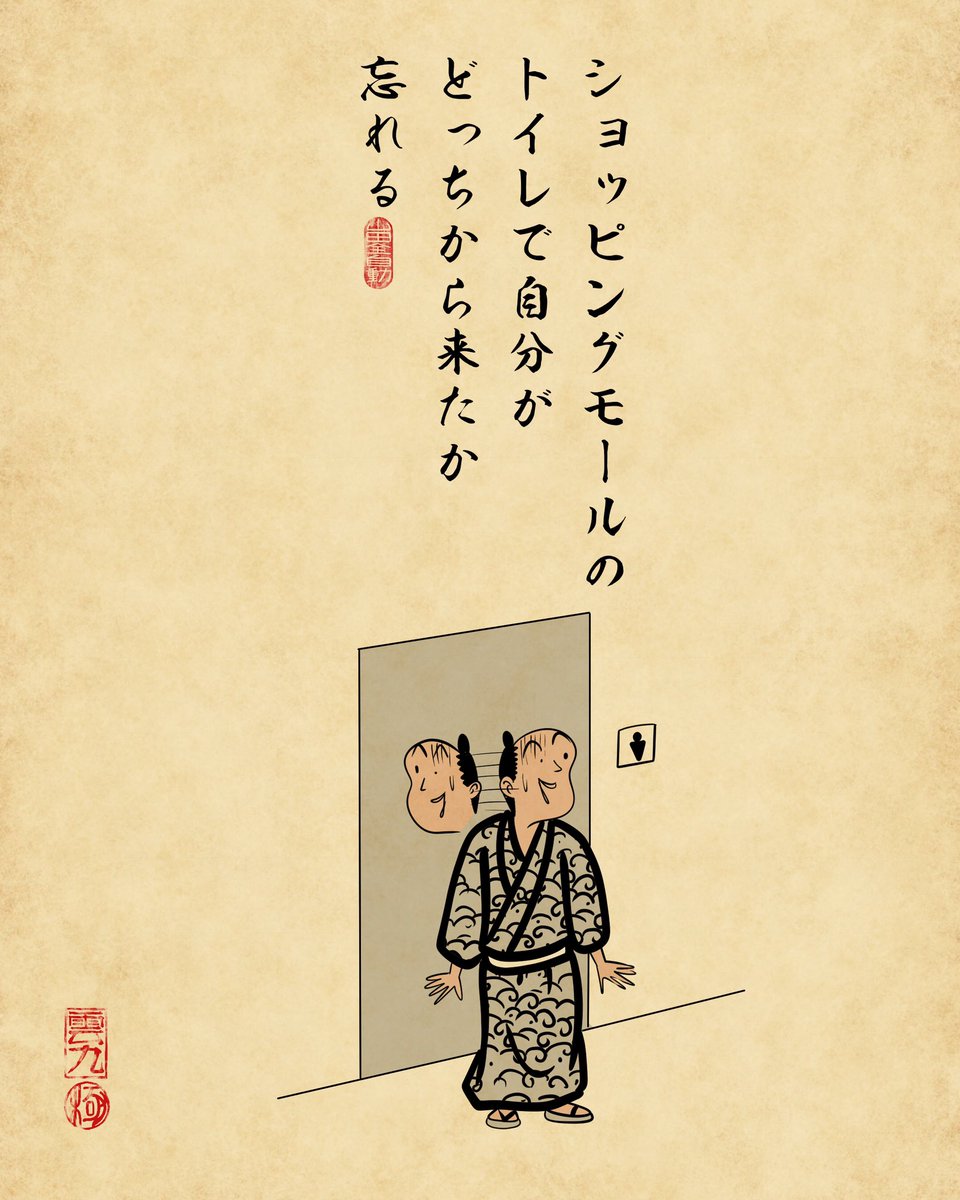 ショッピングモールの
トイレで自分が
どっちから来たか
忘れる
雲九
極